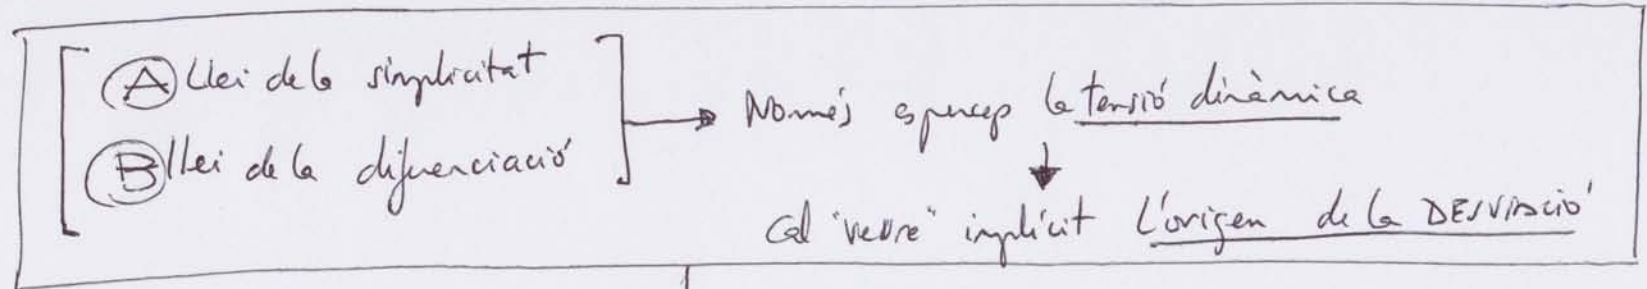 A Llei de la simplicitat
B llei de la diferenciació
Només es percep la tensió dinàmica
Cal "veure" implícit L'origen de la DESVIACIÓ